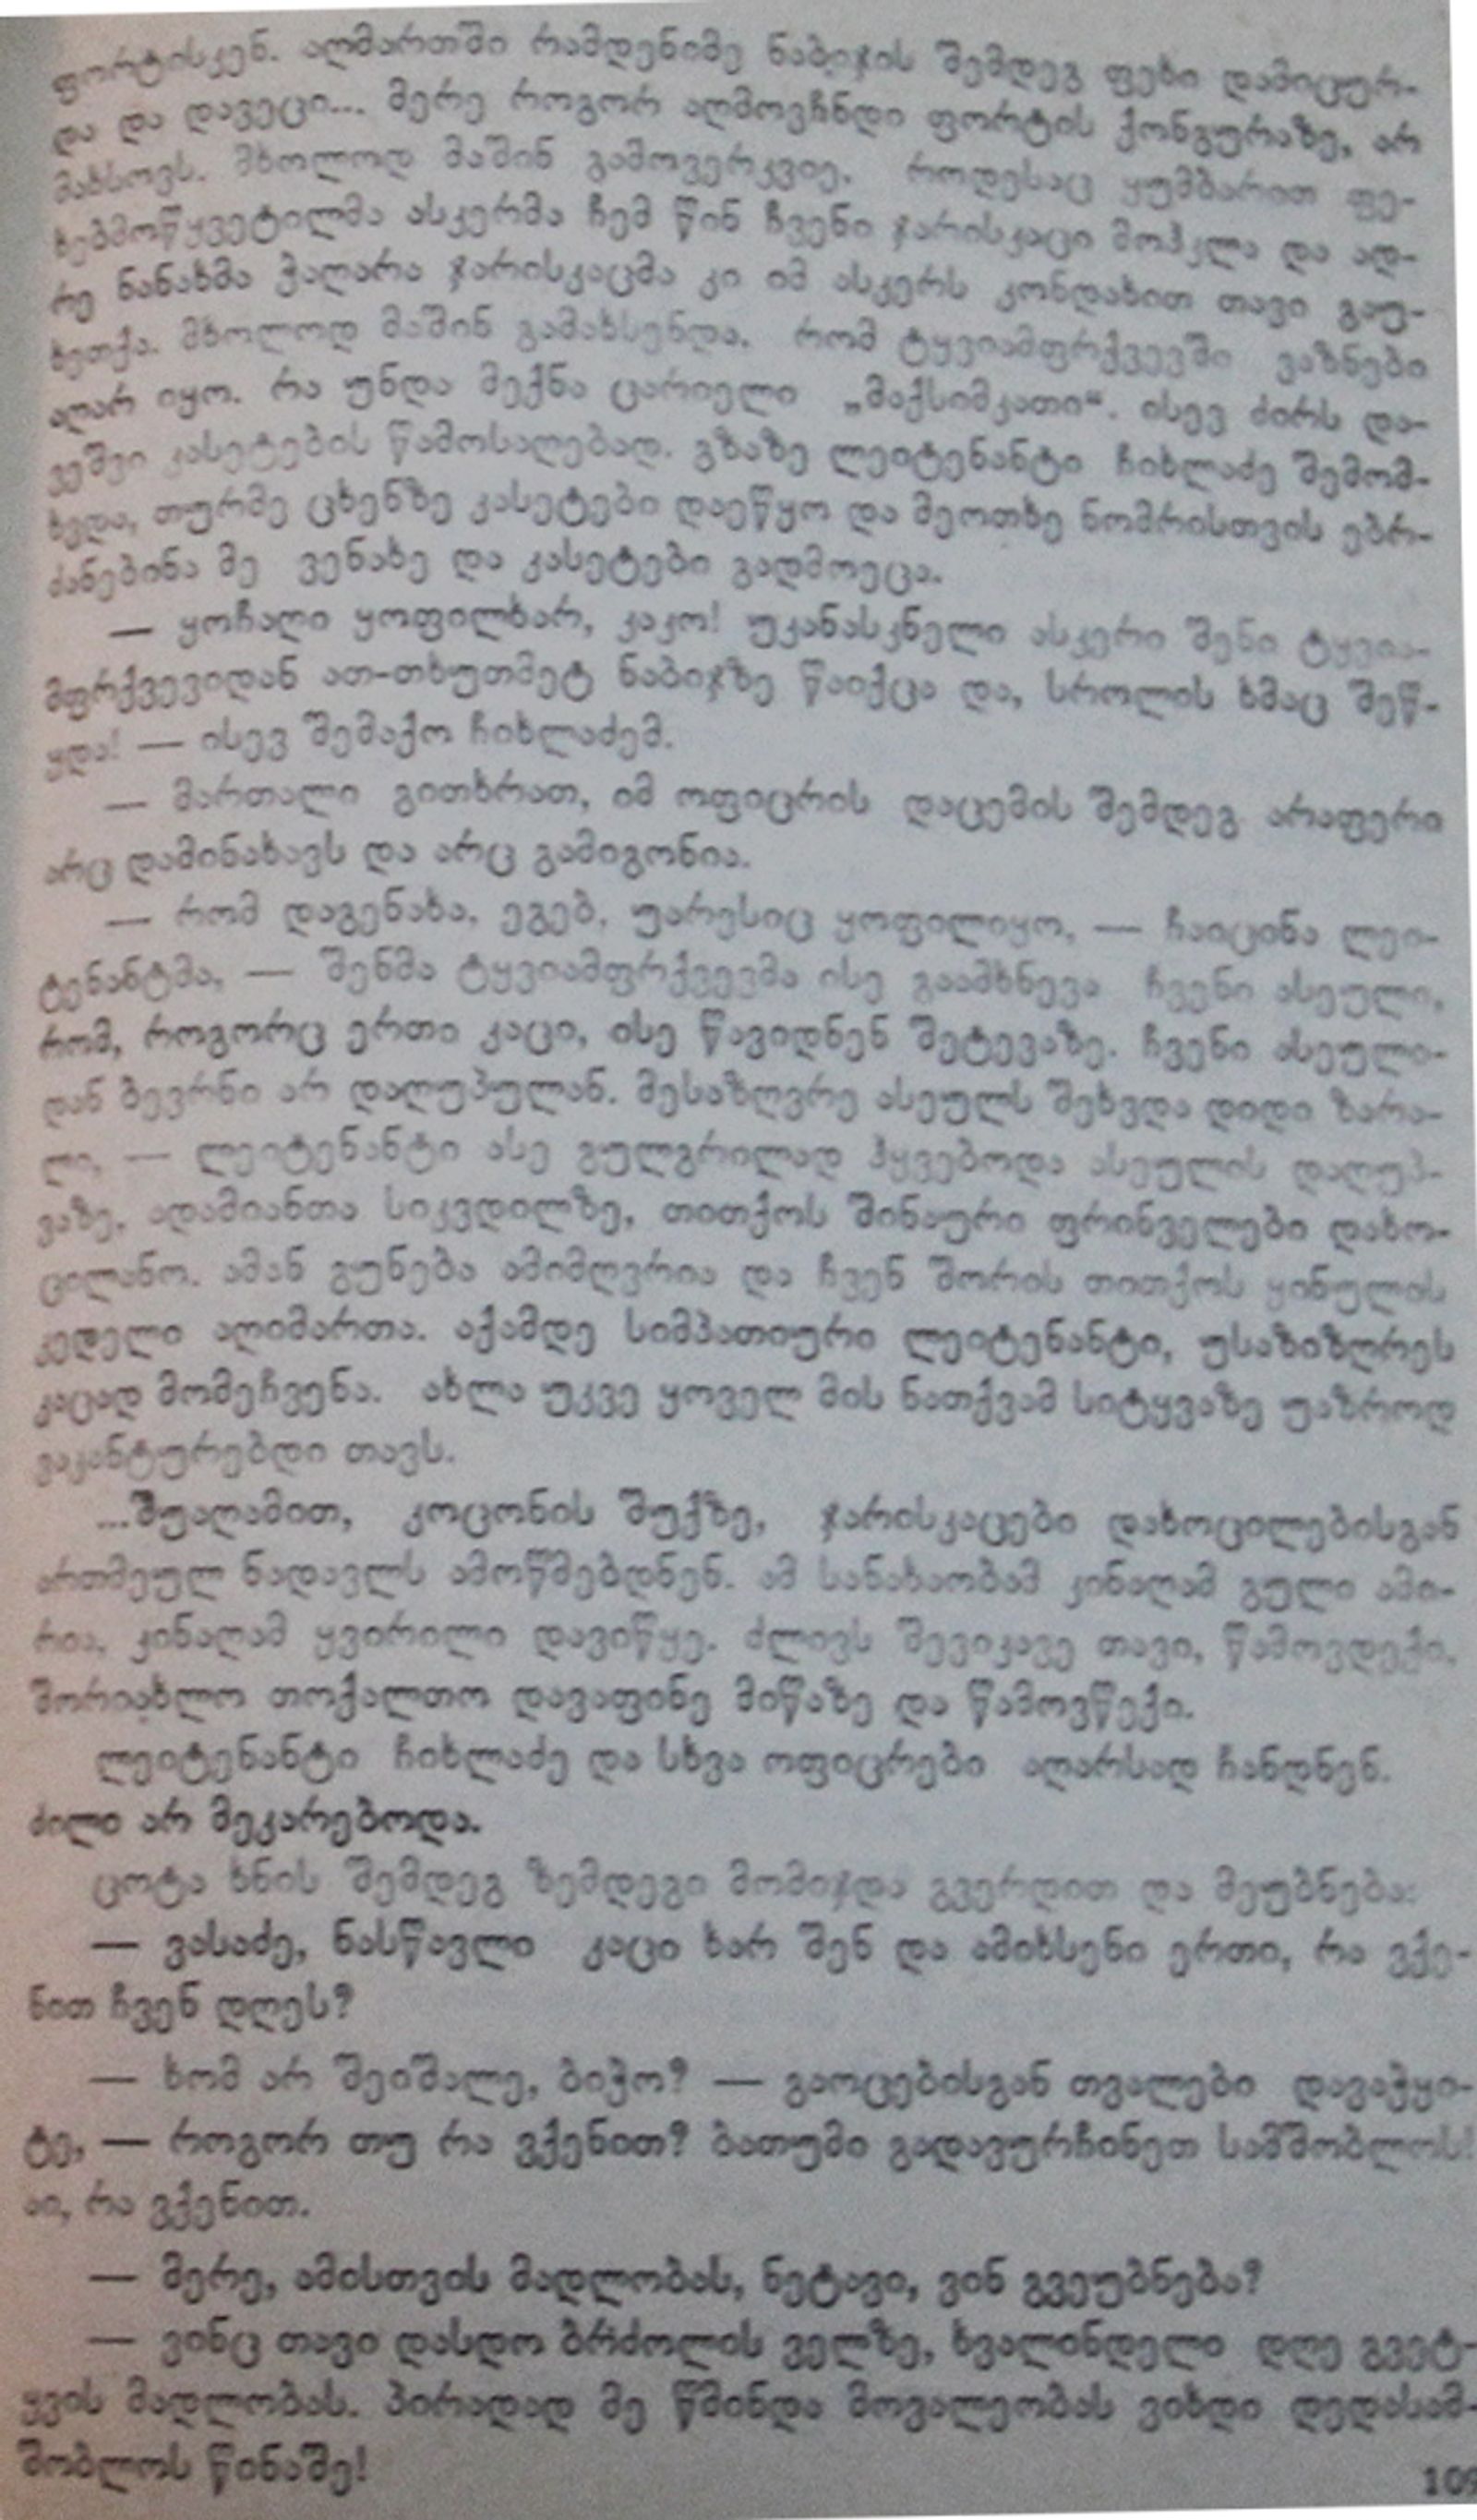 ფორტისკენ. აღმართში რამდენიმე ნაბიჯის შემდეგ ფეხი დამიცურ-
და და დავეცი... მერე როგორ აღმოვჩნდი ფორტის ქონგურაზე, არ
მახსოვს. მხოლოდ მაშინ გამოვერკვიე, როდესაც ყუმბარით ფე-
ხებმოწყვეტილმა ასკერმა ჩემ წინ ჩვენი ჯარისკაცი მოჰკლა და ად-
რე ნანახმა ჭაღარა ჯარისკაცმა კი იმ ასკერს კონდახით თავი გაუ-
ხეთქა. მხოლოდ მაშინ გამახსენდა, რომ ტყვიამფრქვევში ვაზნები
აღარ იყო. რა უნდა მექნა ცარიელი „მაქსიმკათი“. ისევ ძირს და-
ვეშვი კასეტების წამოსაღებად. გზაზე ლეიტენანტი ჩიხლაძე შემომ-
ხვდა, თურმე ცხენზე კასეტები დაეწყო და მეოთხე ნომრისთვის ებრ-
ძანებინა მე ვენახე და კასეტები გადმოეცა.
— ყოჩაღი ყოფილხარ, კაკო! უკანასკნელი ასკერი შენი ტყვია-
მფრქვევიდან ათ-თხუთმეტ ნაბიჯზე წაიქცა და, სროლის ხმაც შეწ-
ყდა! — ისევ შემაქო ჩიხლაძემ.
— მართალი გითხრათ, იმ ოფიცრის დაცემის შემდეგ არაფერი
არც დამინახავს და არც გამიგონია.
— რომ დაგენახა, ეგებ, უარესიც ყოფილიყო, — ჩაიცინა ლეი-
ტენანტმა, — შენმა ტყვიამფრქვევმა ისე გაამხნევა ჩვენი ასეული,
რომ, როგორც ერთი კაცი, ისე წავიდნენ შეტევაზე. ჩვენი ასეული-
დან ბევრნი არ დაღუპულან. მესაზღვრე ასეულს შეხვდა დიდი ზარა-
ლი, — ლეიტენანტი ასე გულგრილად ჰყვებოდა ასეულის დაღუპ-
ვაზე, ადამიანთა სიკვდილზე, თითქოს შინაური ფრინველები დახო-
ცილანო. ამან გუნება ამიმღვრია და ჩვენ შორის თითქოს ყინულის
კედელი აღიმართა. აქამდე სიმპათიური ლეიტენანტი, უსაზიზღრეს
კაცად მომეჩვენა. ახლა უკვე ყოველ მის ნათქვამ სიტყვაზე უაზროდ
ვაკანტურებდი თავს.
...შუაღამით, კოცონის შუქზე, ჯარისკაცები დახოცილებისგან
ართმეულ ნადავლს ამოწმებდნენ. ამ სანახაობამ კინაღამ გული ამი-
რია, კინაღამ ყვირილი დავიწყე. ძლივს შევიკავე თავი, წამოვდექი,
შორიახლო თოქალთო დავაფინე მიწაზე და წამოვწექი.
ლეიტენანტი ჩიხლაძე და სხვა ოფიცრები აღარსად ჩანდნენ.
ძილი არ მეკარებოდა.
ცოტა ხნის შემდეგ ზემდეგი მომიჯდა გვერდით და მეუბნება:
— ვასაძე, ნასწავლი კაცი ხარ შენ და ამიხსენი ერთი, რა ვქე-
ნით ჩვენ დღეს?
— ხომ არ შეიშალე, ბიჭო? — გაოცებისგან თვალები დავაჭყი-
ტე, — როგორ თუ რა ვქენით? ბათუმი გადავურჩინეთ სამშობლოს!
აი, რა ვქენით.
— მერე, ამისთვის მადლობას, ნეტავი, ვინ გვეუბნება?
— ვინც თავი დასდო ბრძოლის ველზე, ხვალინდელი დღე გვეტ-
ყვის მადლობას. პირადად მე წმინდა მოვალეობას ვიხდი დედასამ-
შობლოს წინაშე!
109